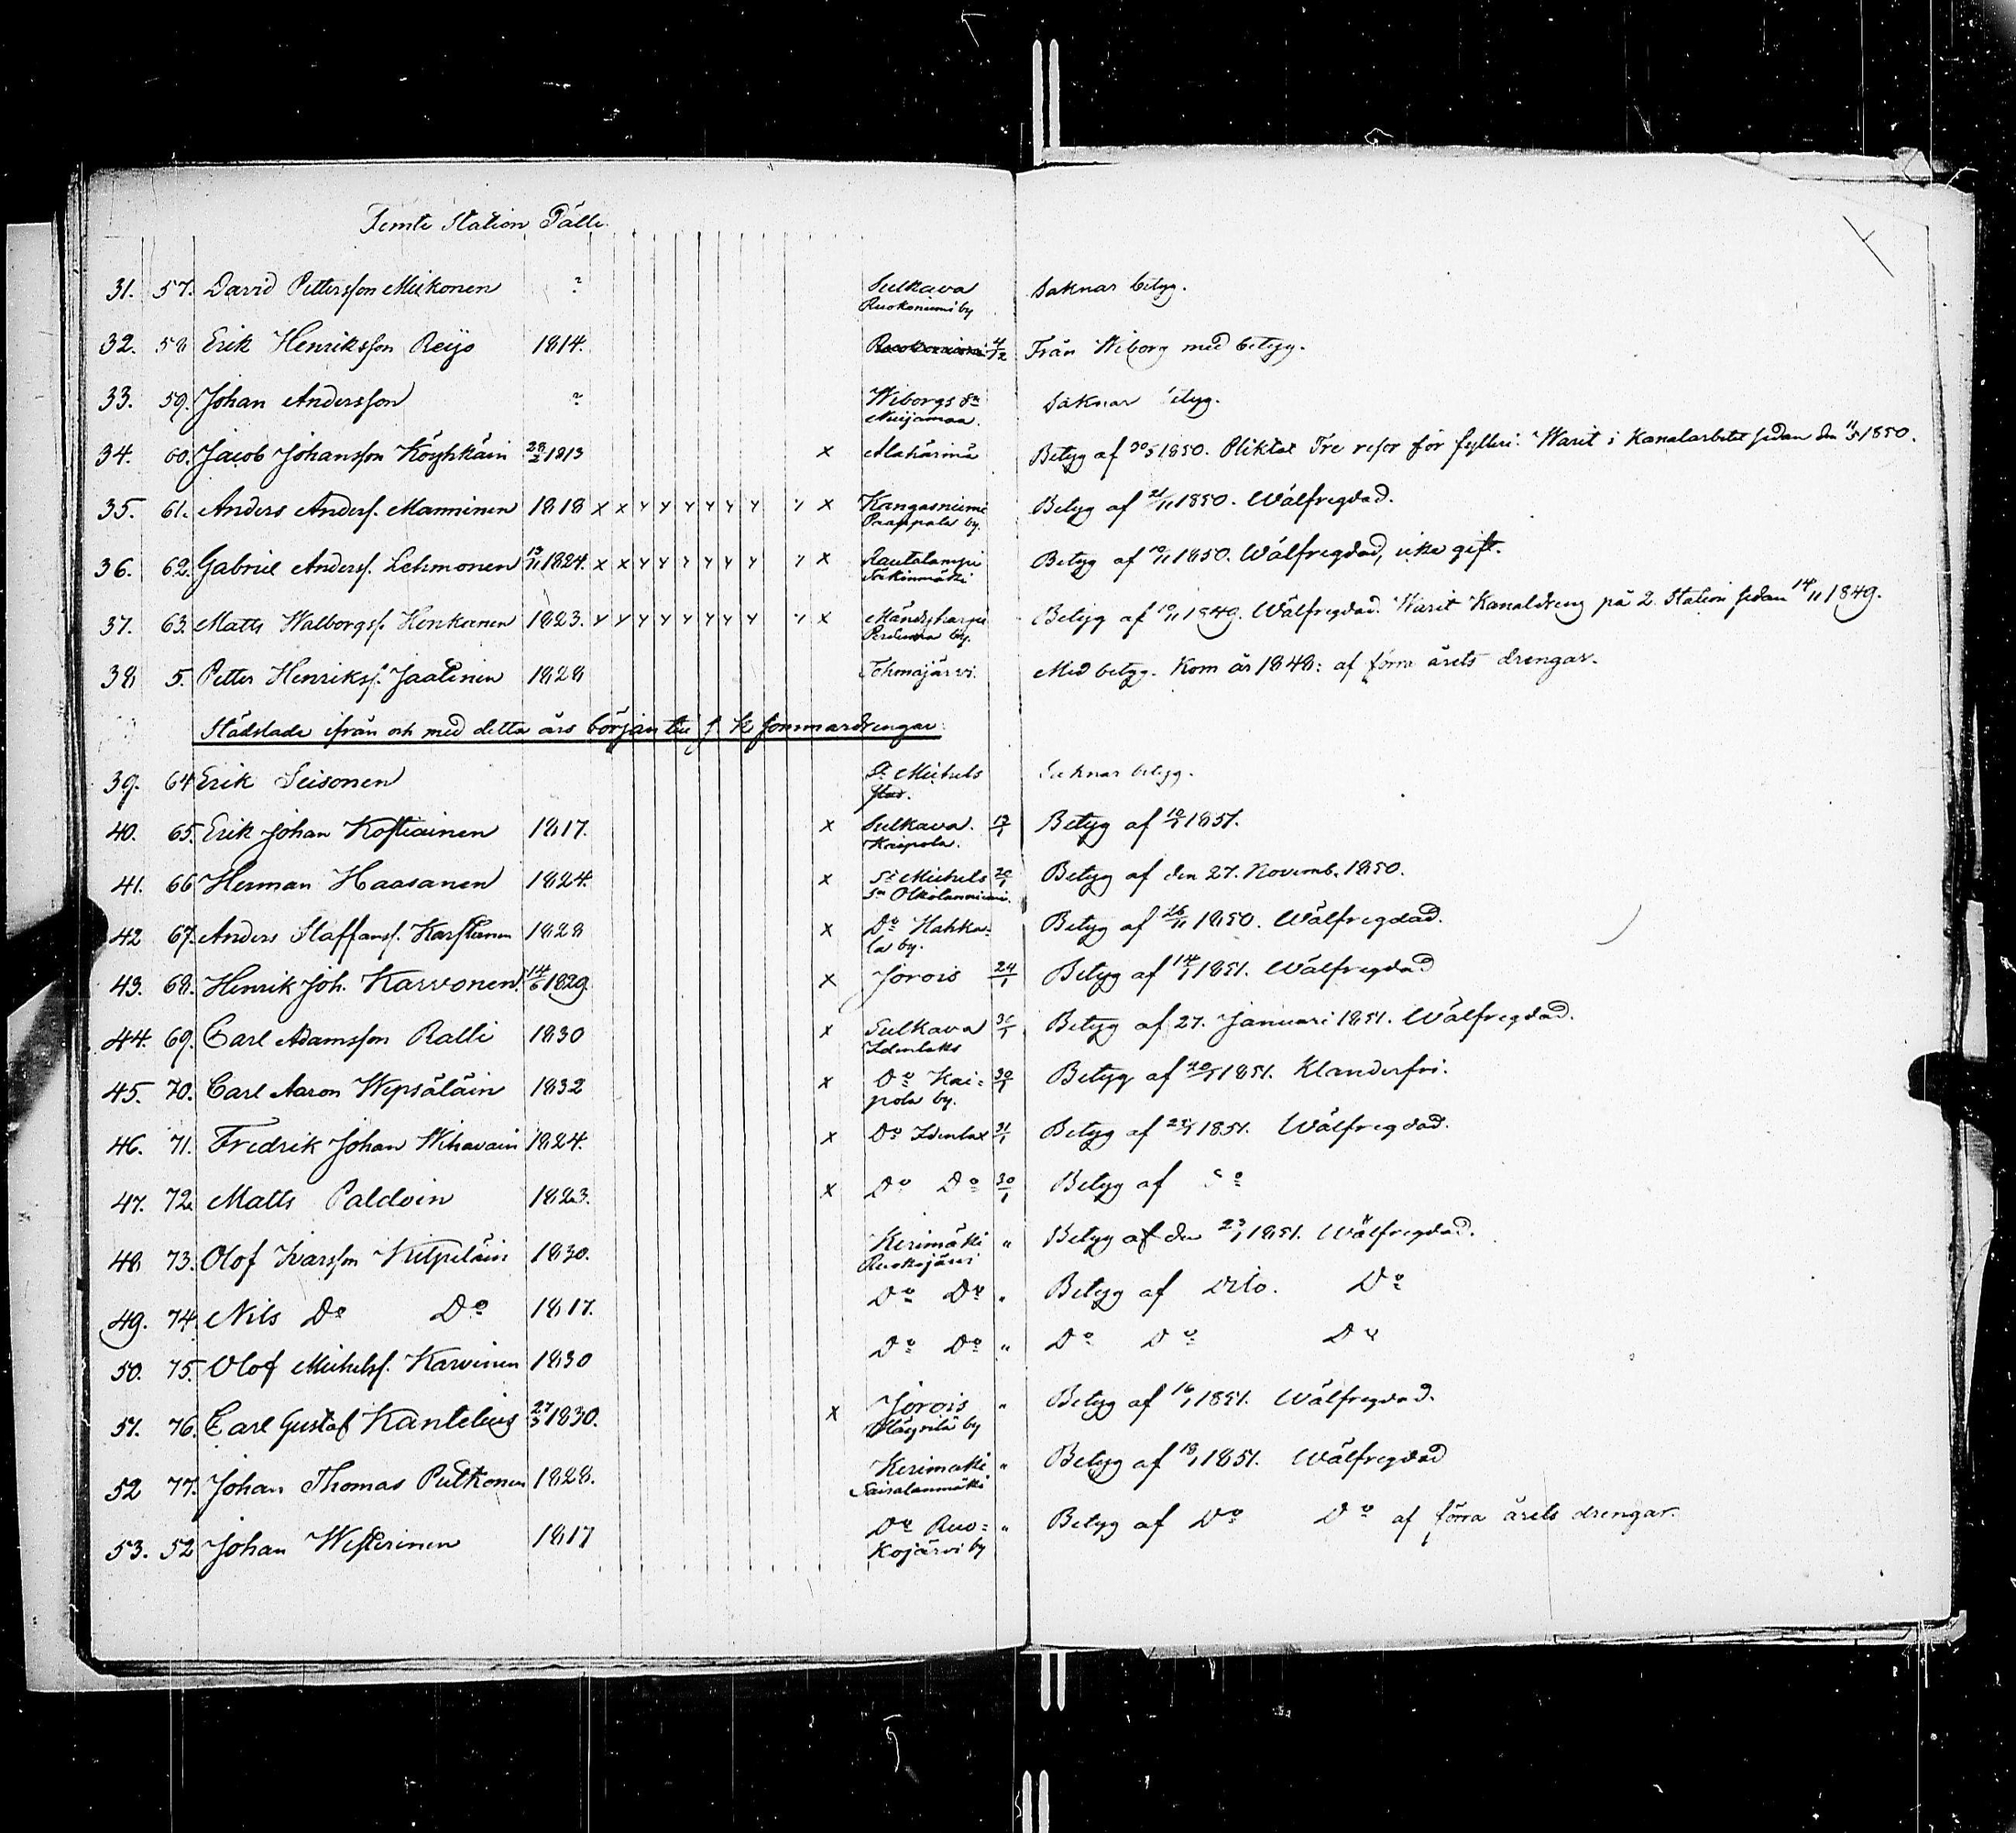 Femte Station Pälli.
31. 57. David Pettersson Miikonen ? Sulkava Saknar betyg.
Ruokoniemi by
32. 58 Erik Henriksson Reijo 1814. Ruokoniemi 4/12 Från Wiborg med betyg.
33. 59. Johan Andersson ? Wiborgs Sn Saknar betyg.
Nuijamaa.
34. 60. Jacob Johansson Köyhkäin 28/2 1813 x Alahärmä Betyg af 30/5 1850. Pliktat Tre resor för fylleri. Warit i Kanalarbete sedan den 11/5 1850.
35. 61. Anders Anderss. Manninen 1818 x x y y y y y y y x Kangasniemi Betyg af 21/11 1850. Wälfregdad.
Paappala by.
36. 62. Gabriel Anderss. Lehmonen 13/11 1824. x x y y y y y y y x Rautalampi Betyg af 10/11 1850. Wälfregdad, icke gift.
37. 63. Matts Walborgss. Henkanen 1823. y y y y y y y y y x Mäntyharju Betyg af 10/11 1849. Wälfregdad. Warit Kanaldreng på 2. Station sedan 14/11 1849.
by.
38 5. Petter Henrikss. Jaatinen 1828 Tohmajärvi. Med betyg. Kom år 1848: af förra årets drengar.
Städslade ifrån och med detta års början till s k sommardrengar:
39. 64 Erik Seisonen St Michels Saknar betyg.
40. 65. Erik Johan Kostiainen 1817. x Sulkava. 13/1 Betyg af 10/1 1851.
Kaipola.
41. 66 Herman Haasanen 1824. x St Michels 20/1 Betyg af den 27. Novemb. 1850.
Sn Olkolanniemi.
42 67. Anders Staffanss. Karstinen 1828 x Do Hahka- Betyg af 26/11 1850. Wälfregdad.
la by.
43. 68. Henrik Joh. Karvonen 14/6 1829. x Jorois 24/1 Betyg af 14/1 1851. Wälfregdad
44. 69. Carl Adamsson Ralli 1830 x Sulkava 30/1 Betyg af 27. Januari 1851. Wälfregdad.
Idenlaks
45. 70. Carl Aaron Wepsäläin 1832 x Do Kai- 30/1 Betyg af 20/1 1851. Klanderfri.
pola by.
46. 71. Fredrik Johan Wihavain 1824. x Do Idenlax 31/1 Betyg af 24/1 1851. Wälfregdad.
47. 72. Matts Paldoin 1823. x Do Do 30/1 Betyg af Do
48 73. Olof Ivarsson Kilpiläin 1830. Kerimäki " Betyg af den 23/1 1851. Wälfregdad.
Ruokojärvi
49. 74. Nils Do Do 1817. Do Do " Betyg af Dito. Do
50. 75. Olof Michelss. Karvinen 1830 Do Do " Do Do Do
51. 76. Carl Gustaf Kantelius 27/3 1830. x Jorois " Betyg af 16/1 1851. Wälfregdad.
by
52 77. Johan Thomas Putkonen 1828. Kerimäki " Betyg af 18/1 1851. Wälfregdad
53. 52 Johan Westerinen 1817 Do Ruo- " Betyg af Do Do af förra årets drengar.
kojärvi by